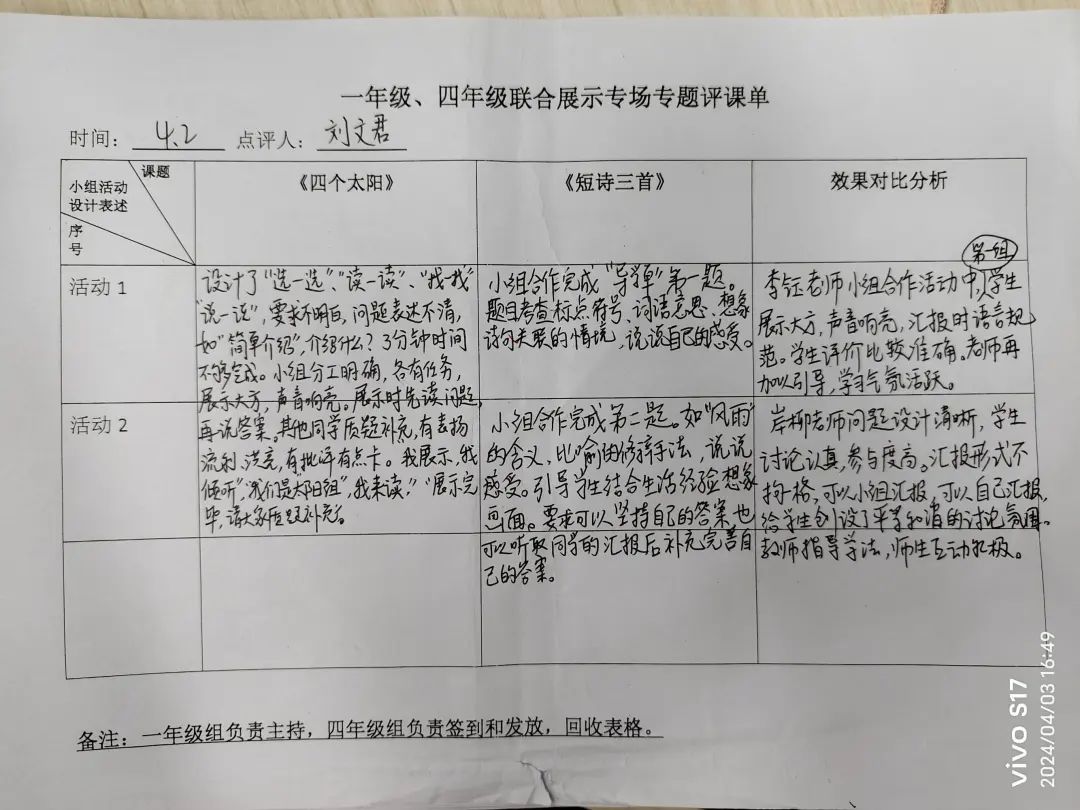 一年级、四年级联合展示专场专题评课单
时间： 4.2 点评人： 刘文君
课题
小组活动
设计表述
序
号
《四个太阳》
《短诗三首》
效果对比分析
第一组
活动 1
设计了“选一选”、“读一读”、“找一找”
“说一说”，要求不明白，问题表达不清，
如“简单介绍”，介绍什么？3分钟时间
不够完成。小组分工明确，各有任务，
展示大方，声音响亮。展示时先读问题，
再说答案。其他同学质疑补充，有表扬
流利、洪亮，有批评有点卡。我展示，我
倾听”，“我们是太阳组”，“我来读，”“展示完
毕，请大家质疑补充”。
小组合作完成“导学单”第一题。
题目考查标点符号、词语意思、想象
诗句关联的情境，说说自己的感受。
李钰老师小组合作活动中，学生
展示大方，声音响亮，汇报时语言规
范。学生评价比较准确。老师再
加以引导，学习气氛活跃。
活动 2
小组合作完成第二题。如“风雨”
的含义，比喻的修辞手法，说说
感受。引导学生结合生活经验想象
画面。要求可以坚持自己的答案，也
可以听取同学的汇报后补充完善自
己的答案。
岸柳老师问题设计清晰，学生
讨论认真，参与度高。汇报形式不
拘一格，可以小组汇报，可以自己汇报，
给学生创设了平等和谐的讨论氛围。
教师指导学法，师生互动积极。
备注：一年级组负责主持，四年级组负责签到和发放，回收表格。
vivo S17
2024/04/03 16:49